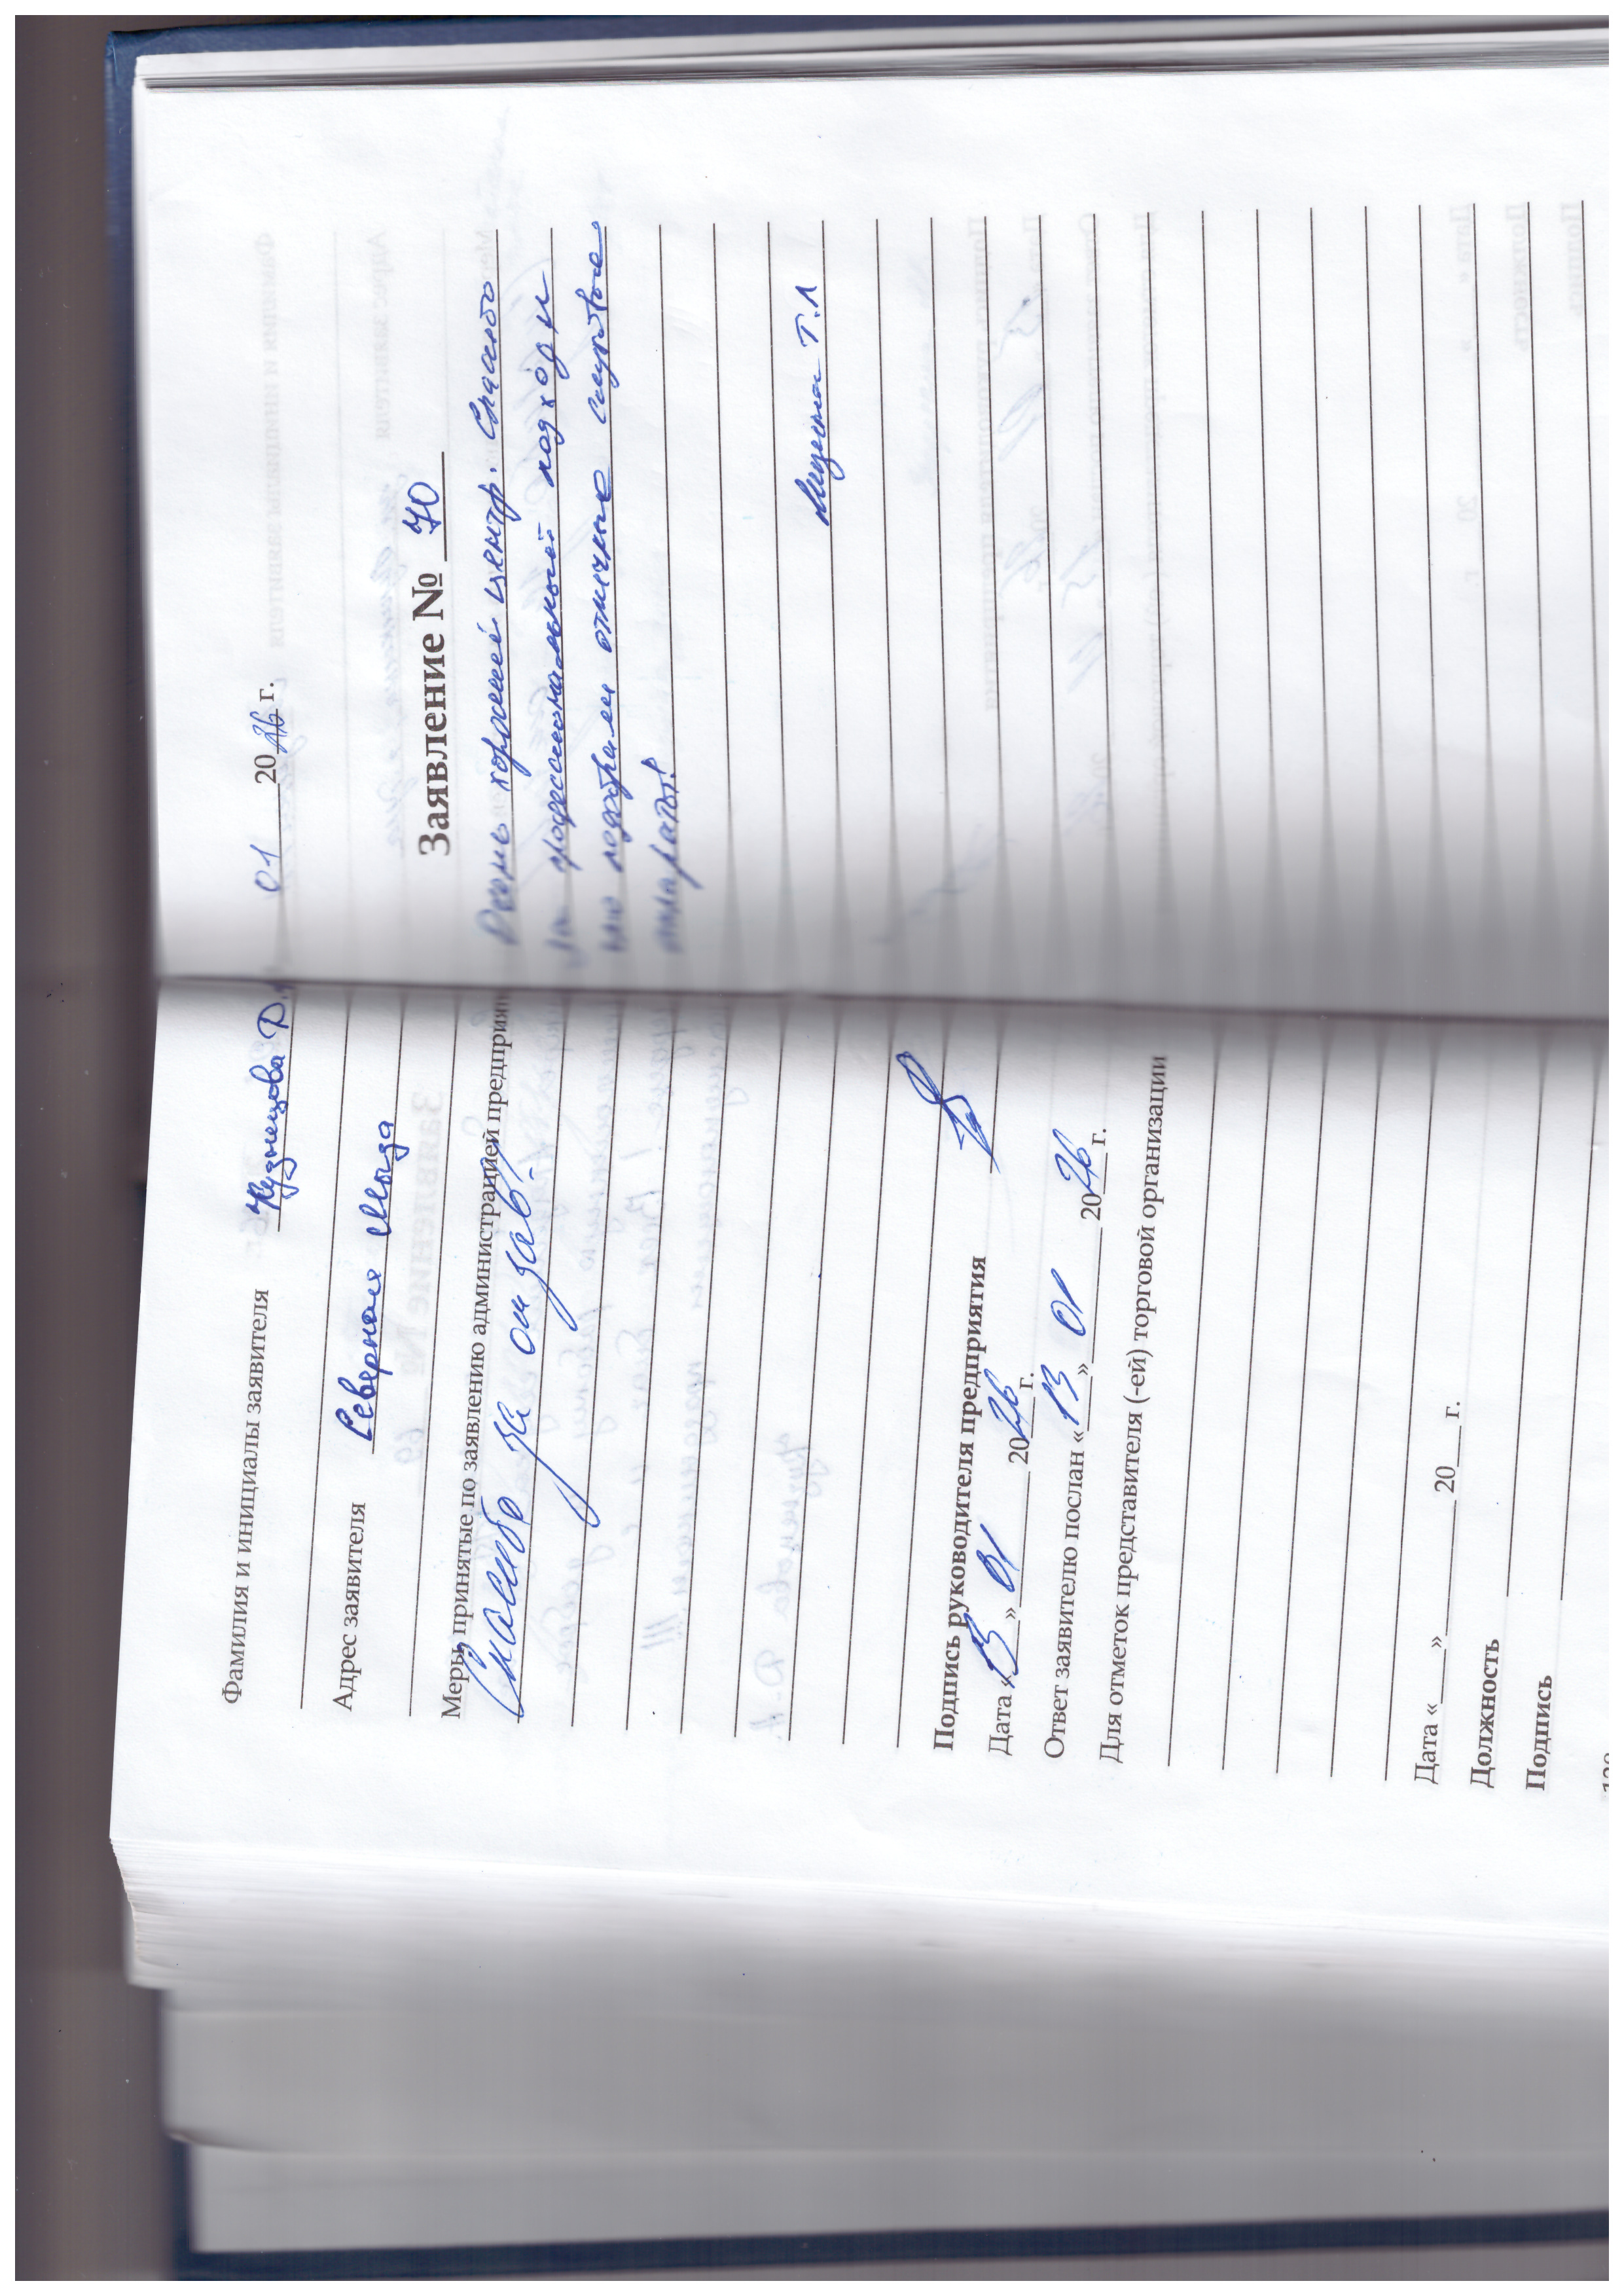 Фамилия и инициалы заявителя Кузнецова Д.
Адрес заявителя Северная Мыза
Меры, принятые по заявлению администрацией предприят
Спасибо за отзыв!
Подпись руководителя предприятия
Дата «13» 01 2026 г.
Ответ заявителю послан «13» 01 2026 г.
Для отметок представителя (-ей) торговой организации
Дата «___» ______ 20___ г.
Должность
Подпись
01 2026 г.
Заявление № 70
Очень хороший центр. Спасибо
за профессиональный подход и
что подобрали отличные слуховые
аппараты!
Т.Л